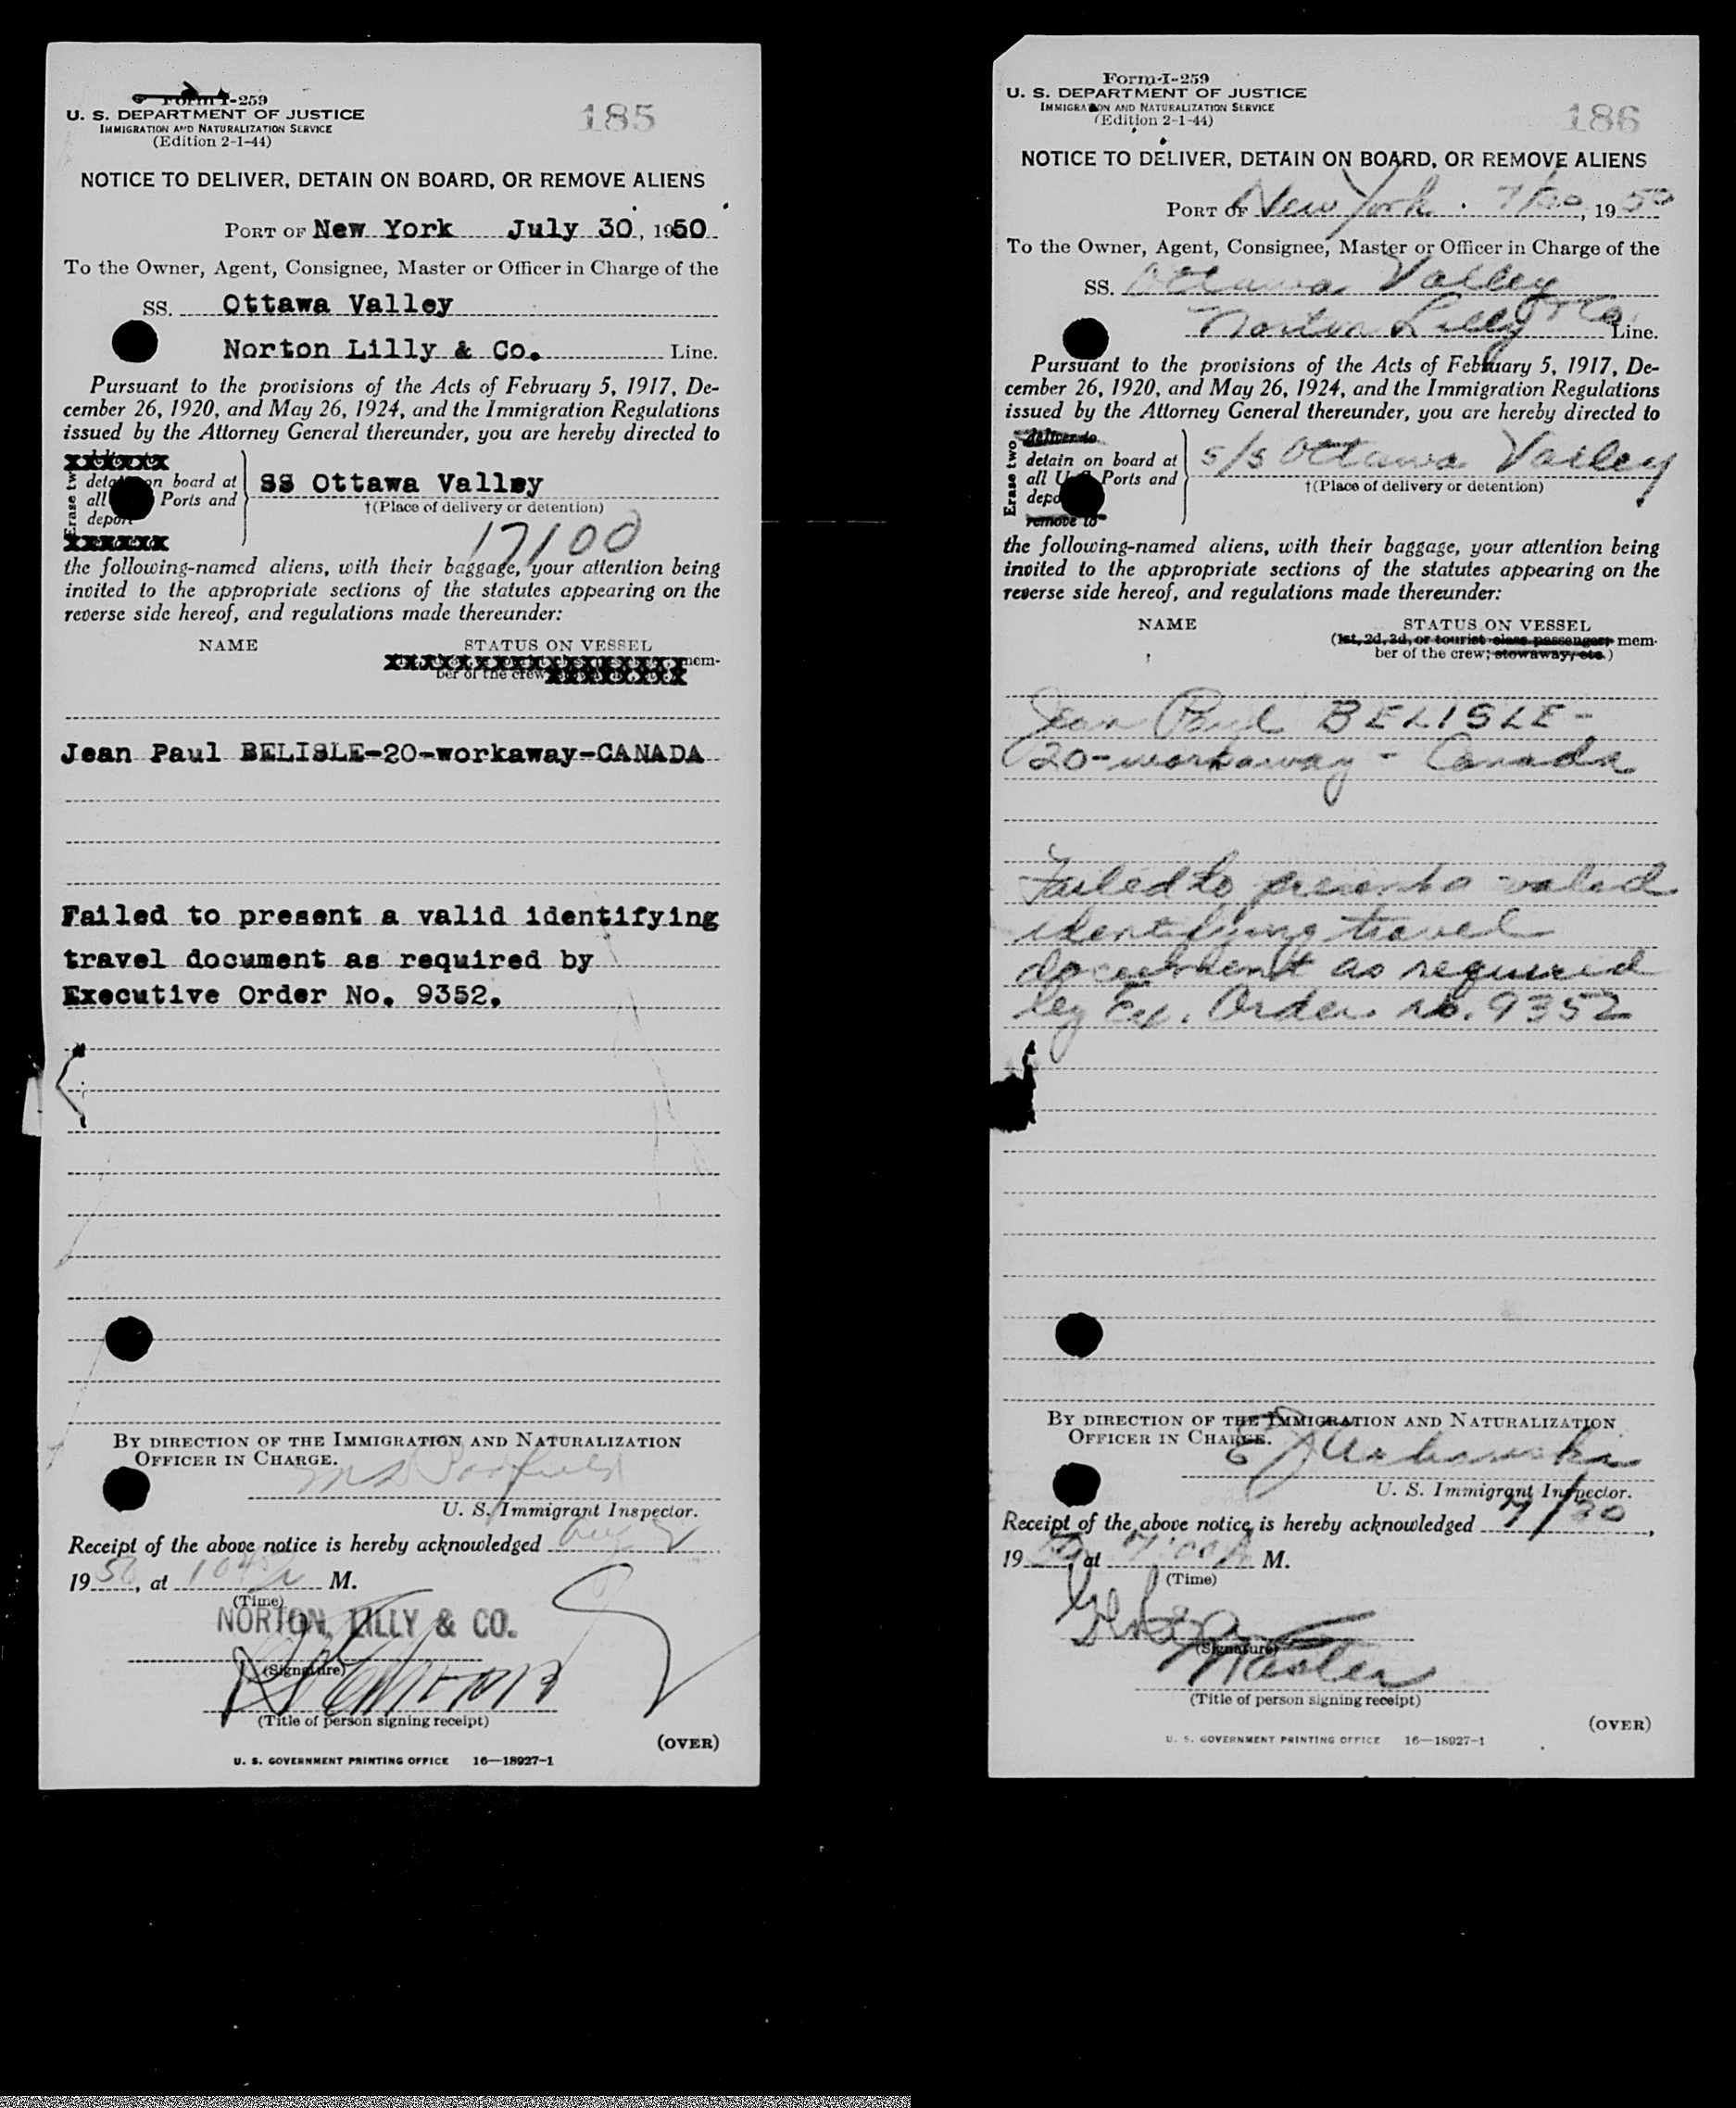 Form I-259
U. S. DEPARTMENT OF JUSTICE
IMMIGRATION AND NATURALIZATION SERVICE
(Edition 2-1-44)
185
NOTICE TO DELIVER, DETAIN ON BOARD, OR REMOVE ALIENS
PORT OF New York July 30, 1950
To the Owner, Agent, Consignee, Master or Officer in Charge of the
SS. Ottawa Valley
Norton Lilly & Co. Line.
Pursuant to the provisions of the Acts of February 5, 1917, De-
cember 26, 1920, and May 26, 1924, and the Immigration Regulations
issued by the Attorney General thereunder, you are hereby directed to
Erase two
xxxxxx
detain on board at
all Ports and
deport
xxxxxx
SS Ottawa Valley
†(Place of delivery or detention)
17100
the following-named aliens, with their baggage, your attention being
invited to the appropriate sections of the statutes appearing on the
reverse side hereof, and regulations made thereunder:
NAME STATUS ON VESSEL
mem-
ber of the crew
Jean Paul BELISLE-20-workaway-CANADA
Failed to present a valid identifying
travel document as required by
Executive Order No. 9352.
BY DIRECTION OF THE IMMIGRATION AND NATURALIZATION
OFFICER IN CHARGE.
U. S. Immigrant Inspector.
Receipt of the above notice is hereby acknowledged Aug 2
1950, at M.
(Time)
NORTON, LILLY & CO.
(Signature)
(Title of person signing receipt)
(OVER)
U. S. GOVERNMENT PRINTING OFFICE 16—18927-1
Form I-259
U. S. DEPARTMENT OF JUSTICE
IMMIGRATION AND NATURALIZATION SERVICE
(Edition 2-1-44)
186
NOTICE TO DELIVER, DETAIN ON BOARD, OR REMOVE ALIENS
PORT OF New York 7/30, 1950
To the Owner, Agent, Consignee, Master or Officer in Charge of the
SS. Ottawa Valley
Norton Lilly & Co. Line.
Pursuant to the provisions of the Acts of February 5, 1917, De-
cember 26, 1920, and May 26, 1924, and the Immigration Regulations
issued by the Attorney General thereunder, you are hereby directed to
Erase two
deliver to
detain on board at
all U.S. Ports and
deport
remove to
s/s Ottawa Valley
†(Place of delivery or detention)
the following-named aliens, with their baggage, your attention being
invited to the appropriate sections of the statutes appearing on the
reverse side hereof, and regulations made thereunder:
NAME STATUS ON VESSEL
(1st, 2d, 3d, or tourist class passenger; mem-
ber of the crew; stowaway, etc.)
Jean Paul BELISLE-
20-workaway - Canada
Failed to present a valid
identifying travel
document as required
by Ex. Order no. 9352
BY DIRECTION OF THE IMMIGRATION AND NATURALIZATION
OFFICER IN CHARGE.
U. S. Immigrant Inspector.
Receipt of the above notice is hereby acknowledged 7/30,
1950, at M.
(Time)
(Signature)
Master
(Title of person signing receipt)
(OVER)
U. S. GOVERNMENT PRINTING OFFICE 16—18927-1